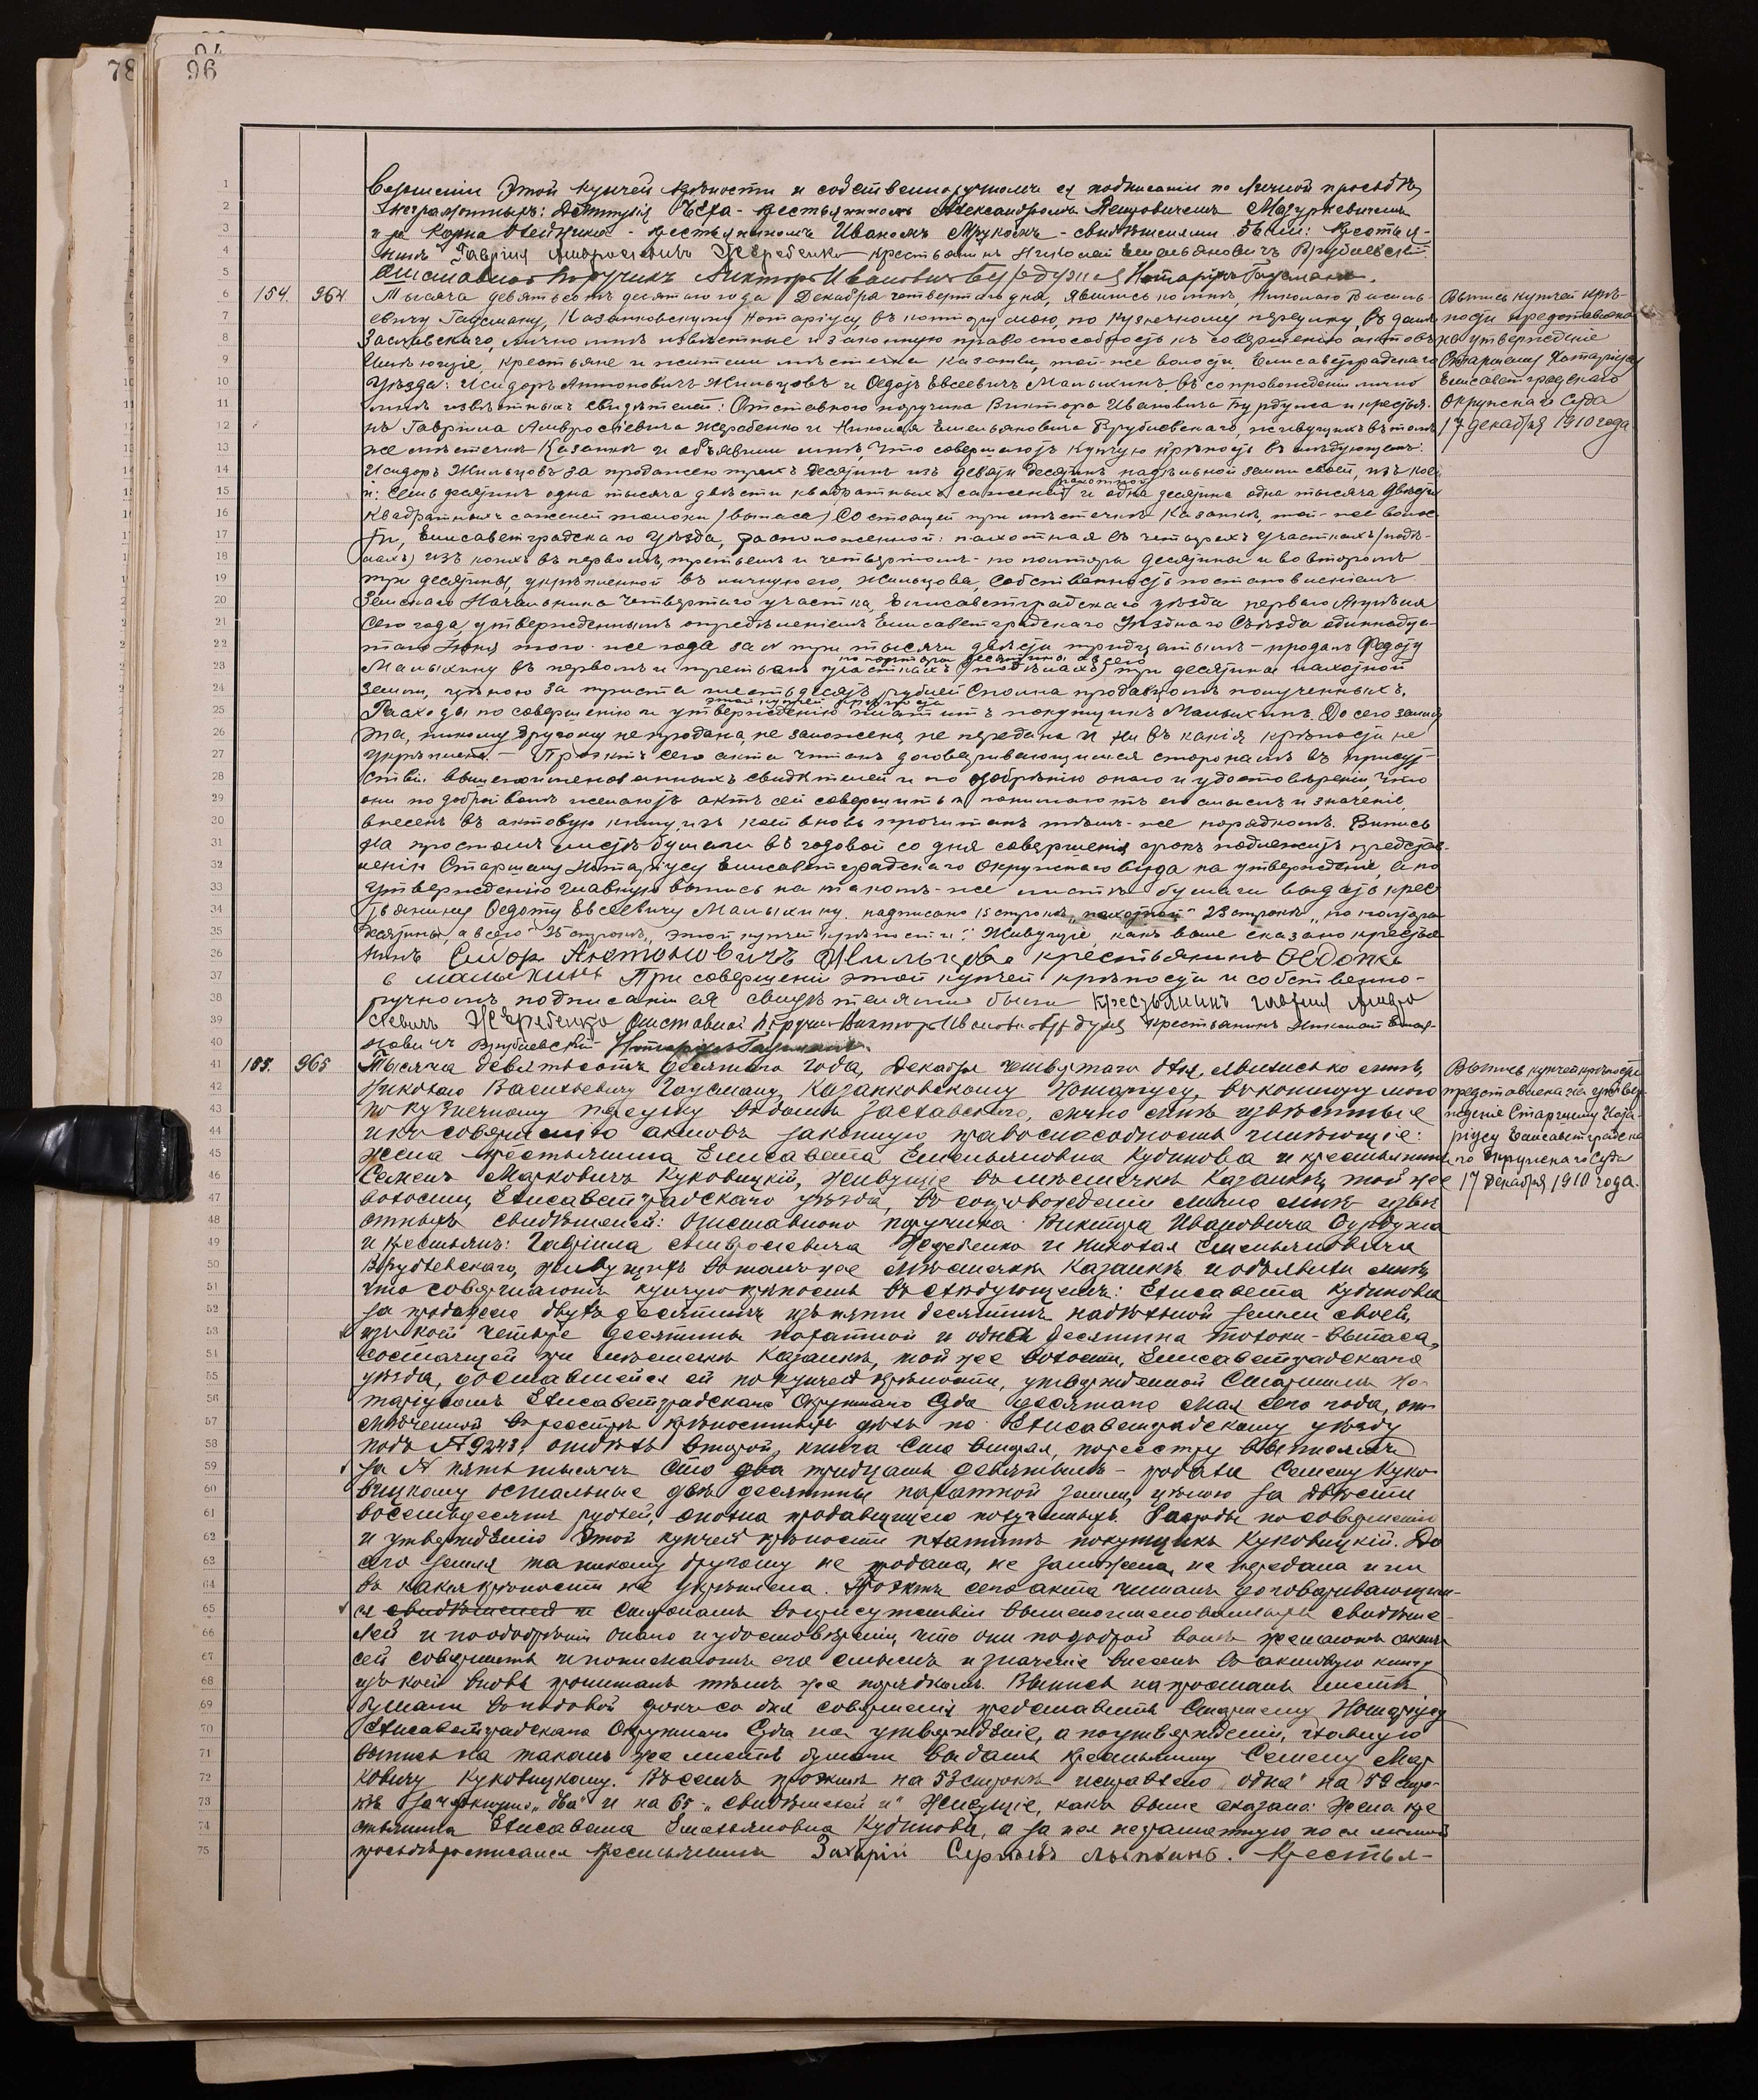 78
96
совершеніи этой купчей крѣпости и собственноручномъ ея подписаніи по личной просьбѣ
неграмотныхъ: Дмитрія Чеха - крестьяниномъ Александромъ Петровичемъ Мазуркевичемъ
и за Карпа Олейника - крестьяниномъ Иваномъ - свидѣтелями были: крестья-
нинъ Гавріилъ Амвросіевичъ Жеребенко крестьянинъ Николай Емельяновичъ Врублевскій
отставной поручикъ Викторъ Ивановичъ Бурдуша Нотаріусъ Гаусманъ.
154. 964 Тысяча девятьсотъ десятаго года Декабря четвертаго дня, явились ко мнѣ, Николаю Василь-
евичу Гаусману, Казанковскому Нотаріусу, въ контору мою, по Кузнечному переулку, въ домѣ
Заславскаго, лично мнѣ извѣстные и законную правоспособность къ совершенію актовъ
имѣющіе, крестьяне и жители мѣстечка Казанки, той-же волости, Елисаветградскаго
уѣзда: Исидоръ Антоновичъ Жильцовъ и Ѳедотъ Евсеевичъ Малыхинъ, въ сопровожденіи лично
мнѣ извѣстныхъ свидѣтелей: Отставного поручика Виктора Ивановича Бурдуша и крестья-
нъ Гавріила Амвросіевича Жеребенко и Николая Емельяновича Врублевскаго, живущихъ въ томъ
же мѣстечкѣ Казанкѣ и объявили мнѣ, что совершаютъ купчую крѣпость въ слѣдующемъ:
Исидоръ Жильцовъ за продажею трехъ десятинъ изъ девяти десятинъ надѣльной земли своей, изъ кое-
й: семь десятинъ одна тысяча двѣсти квадратныхъ саженей пахотной и одна десятина одна тысяча двѣсти
квадратныхъ саженей толоки (выпаса) состоящей при мѣстечкѣ Казанкѣ, той-же волос-
ти, Елисаветградскаго уѣзда, расположенной: пахотная въ четырехъ участкахъ (
) изъ коихъ въ первомъ, третьемъ и четвертомъ - по полторы десятины и во второмъ
три десятины, укрѣпленной въ личную его, Жильцова, собственность постановленіемъ
Земскаго Начальника четвертаго участка, Елисаветградскаго уѣзда перваго Апрѣля
сего года утвержденнымъ опредѣленіемъ Елисаветградскаго Уѣзднаго Съѣзда одиннадца-
таго Іюня того-же года за № три тысячи двѣсти тридцатымъ - продалъ Ѳедоту
Малыхину въ первомъ и третьемъ участкахъ по полторы десятины, а всего три десятины пахотной
земли, цѣною за триста шестьдесятъ рублей сполна продавцомъ полученныхъ.
Расходы по совершенію и утвержденію этой купчей крѣпости платитъ покупщикъ Малыхинъ. До сего земля
та, никому другому не продана, не заложена, не передана и ни въ какія крѣпости не
укрѣплена. - Проэктъ сего акта читанъ договаривающимся сторонамъ въ присут-
ствіи вышепоименованныхъ свидѣтелей и по одобреніи онаго и удостовѣреніи, что
они по доброй волѣ желаютъ актъ сей совершить и понимаютъ его смыслъ и значеніе,
внесенъ въ актовую книгу, изъ коей вновь прочитанъ тѣмъ-же порядкомъ. Выпись
на простомъ листѣ бумаги въ годовой со дня совершенія срокъ подлежитъ представ-
ленію Старшему Нотаріусу Елисаветградскаго Окружнаго Суда на утвержденіе, а по
утвержденіи главную выпись на такомъ-же листѣ бумаги выдать крес-
тьянину Ѳедоту Евсеевичу Малыхину. надписано 15 строкѣ "пахотной" 23 строкѣ "по полторы
десятины, а всего" 25 строкѣ "этой купчей крѣпости". Живущіе, какъ выше сказано крестья-
нинъ Сидор Антоновичъ Жильцовъ крестьянинъ Ѳедотъ
Малыхинъ При совершеніи этой купчей крѣпости и собственно-
ручномъ подписаніи ея свидѣтелями были крестьянинъ Гавріил Амвро
сіевичъ Жеребенко, отставной поручикъ Викторъ Ивановичъ Бурдуша крестьянинъ Николай Емелья-
новичъ Врублевскій Нотаріусъ Гаусманъ.
Выпись купчей крѣ-
пости представлена
на утвержденіе
Старшему Нотаріусу
Елисаветградскаго
Окружнаго Суда
17 декабря 1910 года
155. 965 Тысяча девятьсотъ десятаго года, Декабря четвертаго дня, явились ко мнѣ,
Николаю Васильевичу Гаусману, Казанковскому Нотаріусу, въ контору мою
по Кузнечному переулку въ домѣ Заславскаго, лично мнѣ извѣстные
и къ совершенію актовъ законную правоспособность имѣющіе:
жена крестьянина Елисавета Емельяновна Кубикова и крестьянинъ
Семенъ Марковичъ Куковицкій, живущіе въ мѣстечкѣ Казанкѣ, той же
волости, Елисаветградскаго уѣзда, въ сопровожденіи лично мнѣ извѣ-
стныхъ свидѣтелей: отставного поручика Виктора Ивановича Бурдуша
и крестьянъ: Гавріила Амвросіевича Жеребенко и Николая Емельяновича
Врублевскаго, живущихъ въ томъ же мѣстечкѣ Казанкѣ и объявили мнѣ,
что совершаютъ купчую крѣпость въ слѣдующемъ: Елисавета Кубикова
за продажею двухъ десятинъ изъ пяти десятинъ надѣльной земли своей,
изъ коей четыре десятины пахатной и одна десятина толоки - выпаса,
состоящей при мѣстечкѣ Казанкѣ, той же волости, Елисаветградскаго
уѣзда, доставшейся ей по купчей крѣпости, утвержденной Старшимъ Но-
таріусомъ Елисаветградскаго Окружнаго Суда десятаго Мая сего года, от-
мѣченной въ реестрѣ крѣпостныхъ дѣлъ по Елисаветградскому уѣзду
подъ № 9243, отдѣлъ второй, книга сто вторая, по реестру
за № пять тысячъ сто два тридцать девятымъ - продала Семену Куко-
вицкому остальные двѣ десятины пахатной земли, цѣною за двѣсти
восемьдесятъ рублей, сполна продавщицею полученныхъ. Расходы по совершенію
и утвержденію этой купчей крѣпости платитъ покупщикъ Куковицкій. До
сего земля та никому другому не продана, не заложена, не передана и ни
въ какія крѣпости не укрѣплена. Проэктъ сего акта читанъ договаривающим-
ся свидѣтелей и сторонамъ въ присутствіи вышепоименованныхъ свидѣте-
лей и по одобреніи онаго и удостовѣреніи, что они по доброй волѣ желаютъ актъ
сей совершить и понимаютъ его смыслъ и значеніе внесенъ въ актовую книгу
изъ коей вновь прочитанъ тѣмъ же порядкомъ. Выпись на простомъ листѣ
бумаги въ годовой срокъ со дня совершенія представить Старшему Нотаріусу
Елисаветградскаго Окружнаго Суда на утвержденіе, а по утвержденіи, главную
выпись на такомъ же листѣ бумаги выдать крестьянину Семену Мар
ковичу Куковицкому. Въ семъ проэктѣ на 53 строкѣ исправлено "одна" на 59 стро-
кѣ зачеркнуто "два" и на 65 - "свидѣтелей и" Живущіе, какъ выше сказано: жена кре
стьянина Елисавета Емельяновна Кубикова, а за нея неграмотную по ея личной
просьбѣ росписался крестьянинъ Захарій Сергѣевъ. Крестья-
Выпись купчей крѣпости
представлена на утвер-
жденіе Старшему Нота-
ріусу Елисаветградска
го Окружнаго Суда
17 декабря 1910 года.